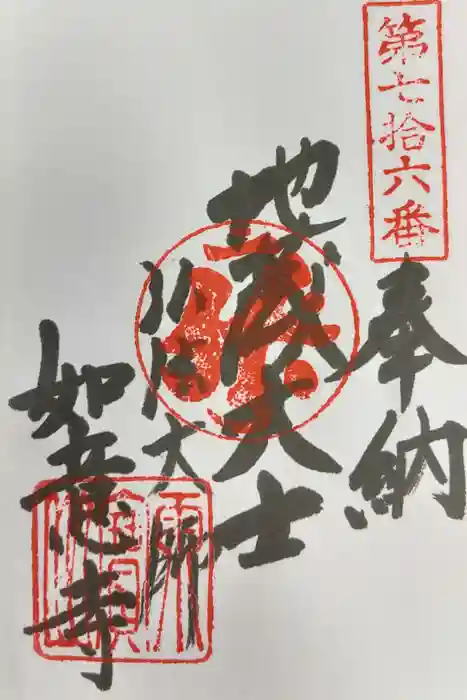 第七拾六番
奉納
地蔵大士
弘法大師
如意寺